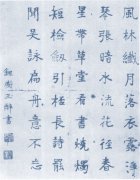 風林纖月落衣露淨
琴張暗水流花徑春
星帶草堂看書燒燭
短檢劍引杯長詩罷
聞吳詠扁舟意不忘